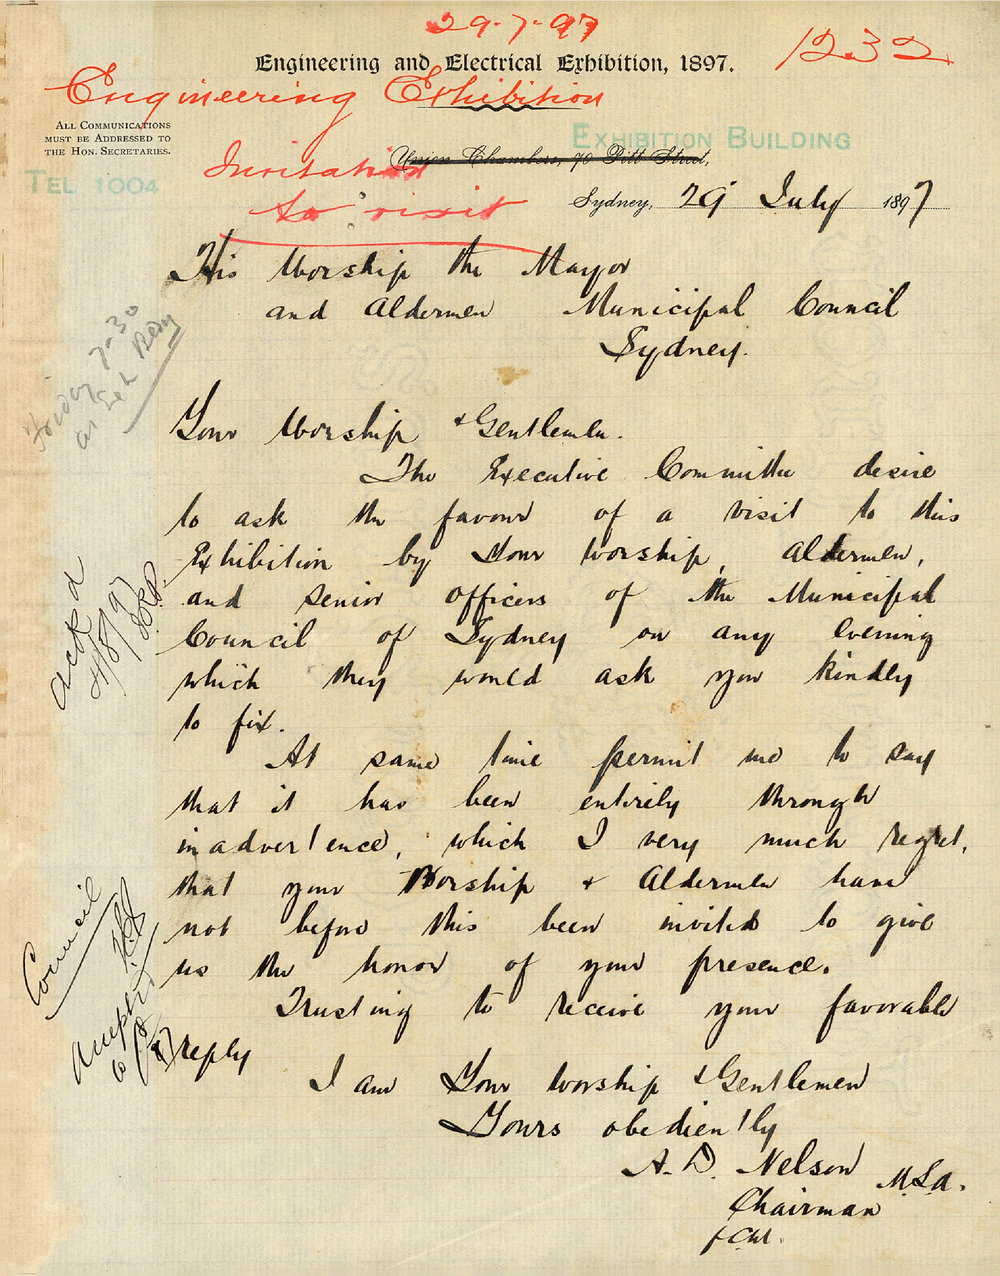 29-7-97
1232
Engineering and Electrical Exhibition, 1897.
Engineering Exhibition
ALL COMMUNICATIONS
MUST BE ADDRESSED TO
THE HON. SECRETARIES.
EXHIBITION BUILDING
Union Chambers, 70 Pitt Street,
Invitation
to visit
TEL 1004
Sydney, 29 July 1897
His Worship the Mayor
and Aldermen Municipal Council
Sydney.
Friday 7-30
at Exh
Your Worship & Gentlemen.
The Executive Committee desire
to ask the favour of a visit to this
Exhibition by Your Worship, Aldermen,
and senior officers of the Municipal
Council of Sydney on any evening
which they would ask you kindly
to fix.
Ackd
4/8/97
At same time permit me to say
that it has been entirely through
inadvertence, which I very much regret,
that your Worship & Aldermen have
not before this been invited to give
us the honor of your presence.
Trusting to receive your favorable
reply
Council
I am Your Worship & Gentlemen
Yours obediently
A. D. Nelson M.L.A.
Chairman